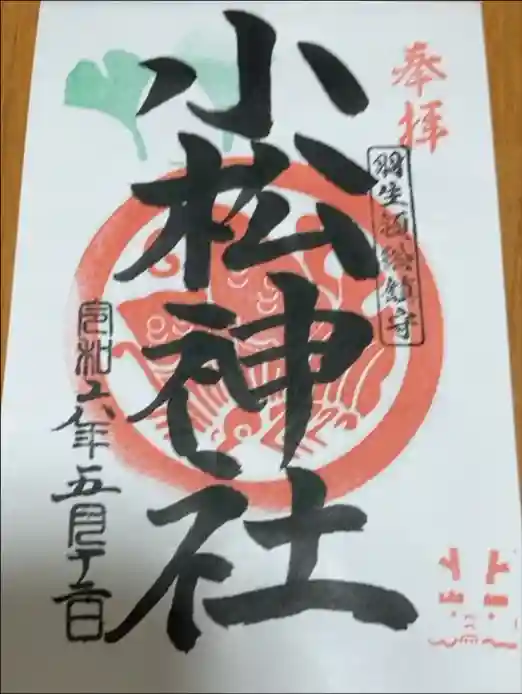 奉拝
羽生酒総鎮守
小松神社
令和六年五月十三日